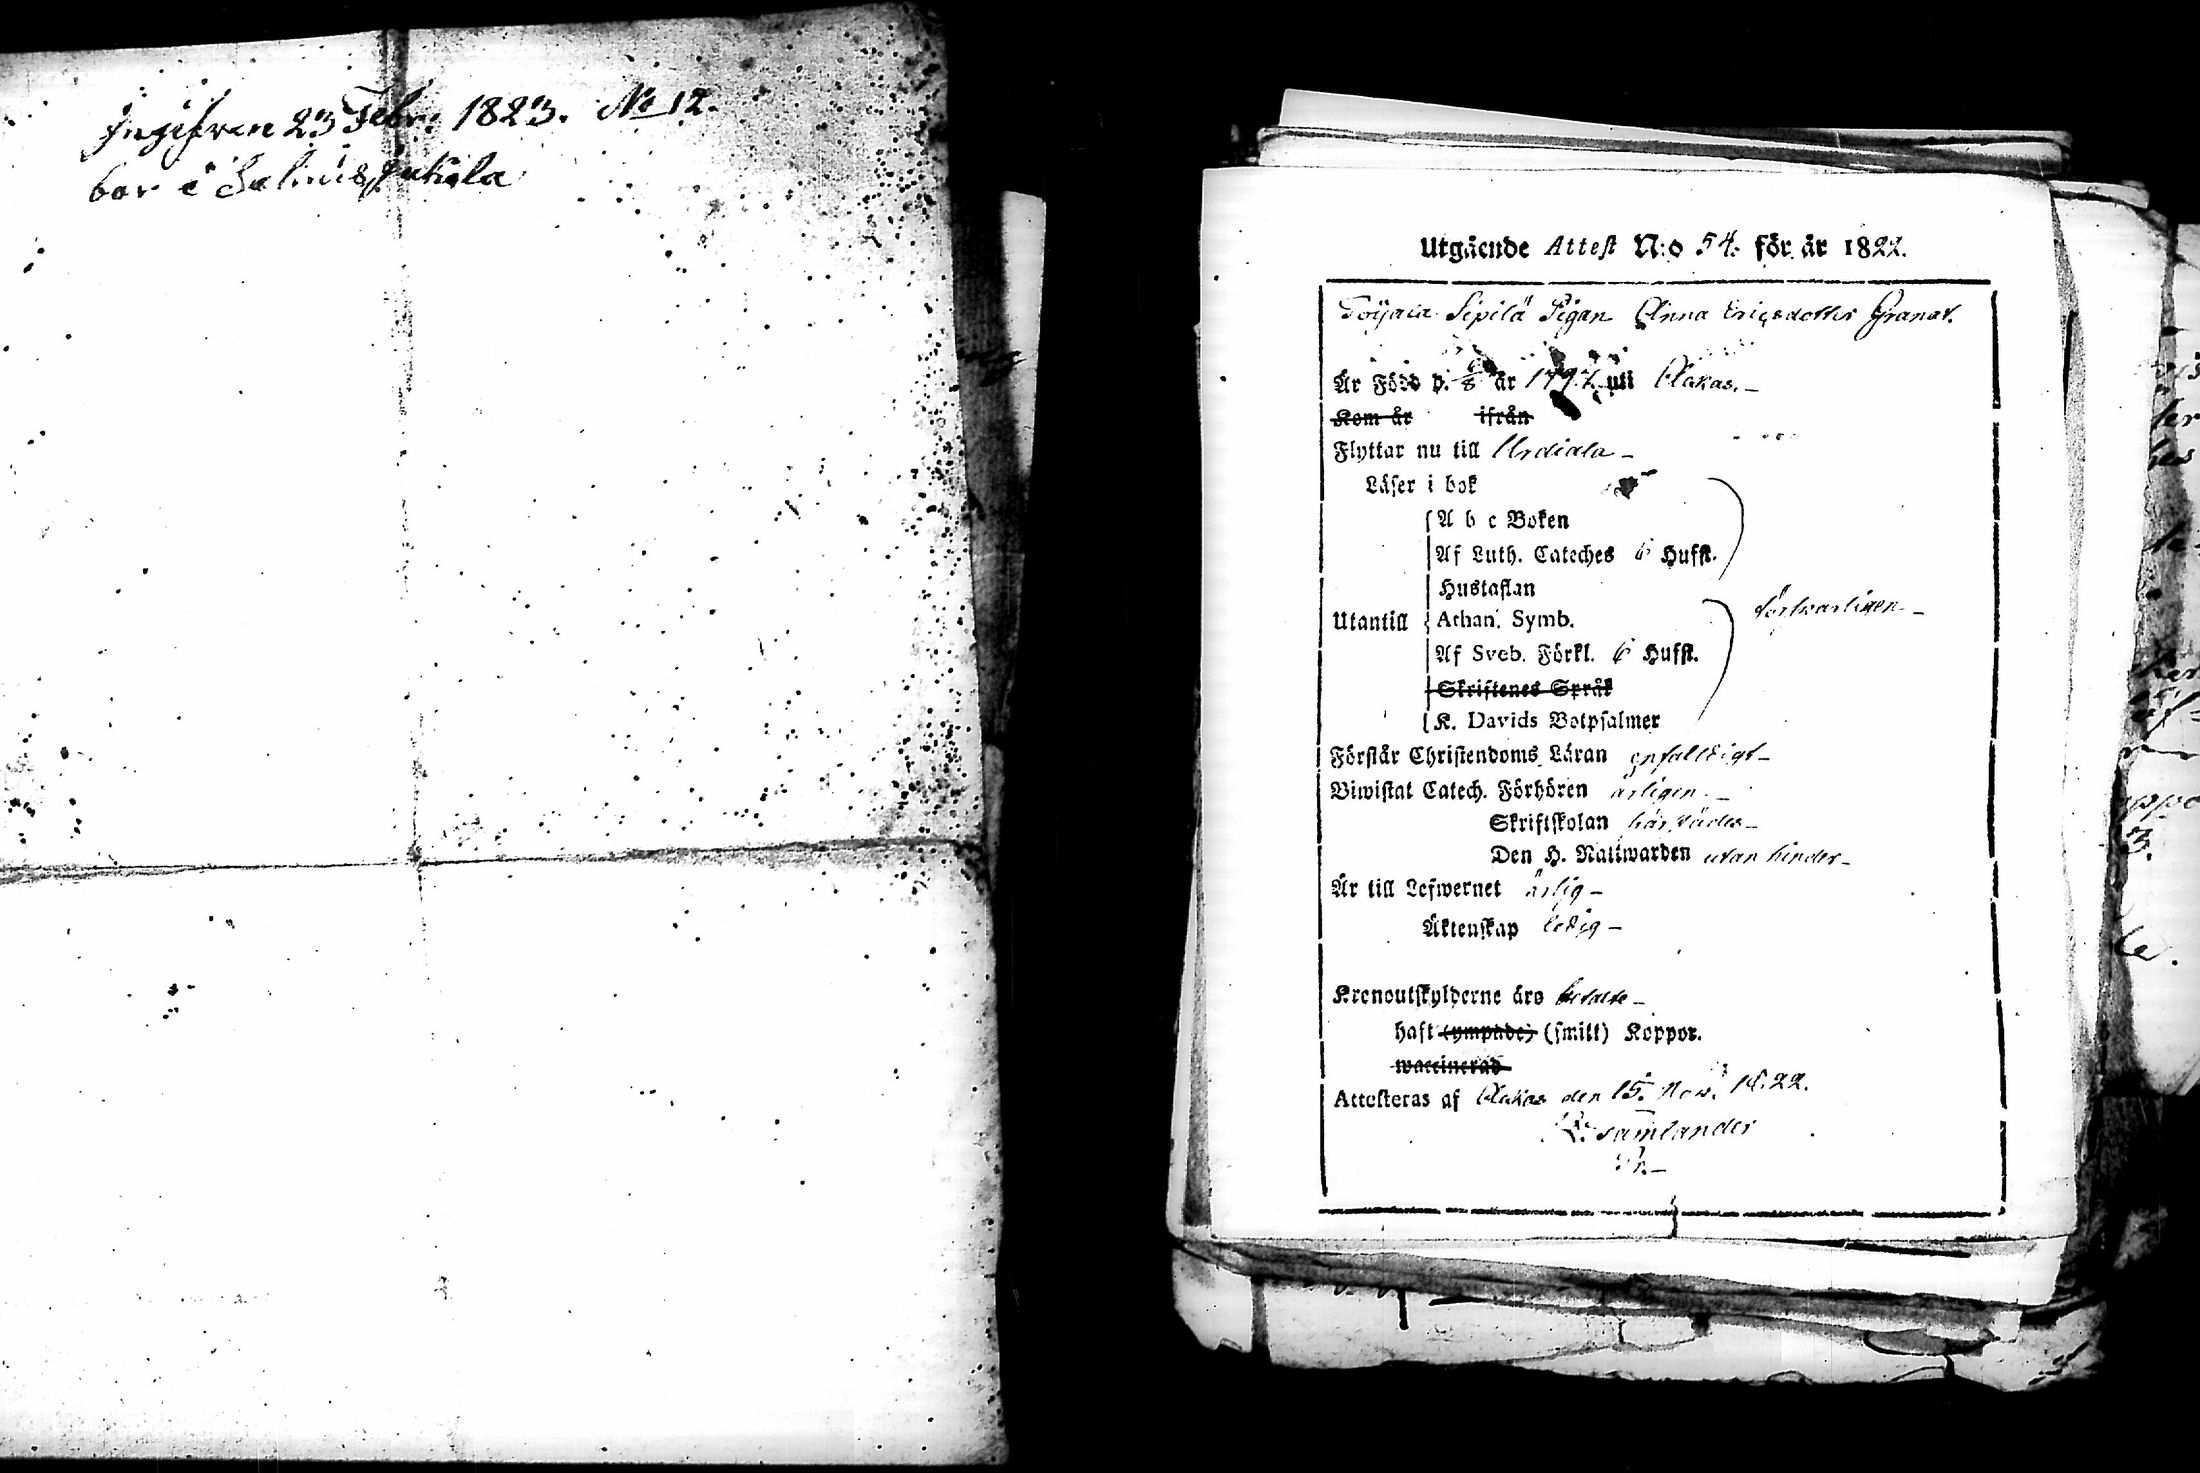 Ingifven 23 Febr. 1823. No 12.
bor i
Utgående Attest N:o 54. för år 1822.
Töijala Sipilä Pigan Anna Ericsdotter Granat.
Är Född d. år 1797 uti Akas.
Kom år ifrån
Flyttar nu till Urdiala
Läser i bok
A b c Boken
Af Luth. Cateches 6 Hufst.
Hustaflan
försvarligen
Utantill Athan. Symb.
Af Sveb. Förkl. 6 Hufst.
Skriftenes Språk
K. Davids Botpsalmer
Förstår Christendoms Läran enfalldigt
Biwistat Catech. Förhören årligen
Skriftskolan härstädes
Den H. Nattwarden utan hinder
Är till Lefwernet ärlig
Äktenskap ledig
Kronoutskylderne äro betalte
haft (ympade) (smitt) Koppor.
waccinerad
Attesteras af Akas den 15. Nov. 1822.
Samlander